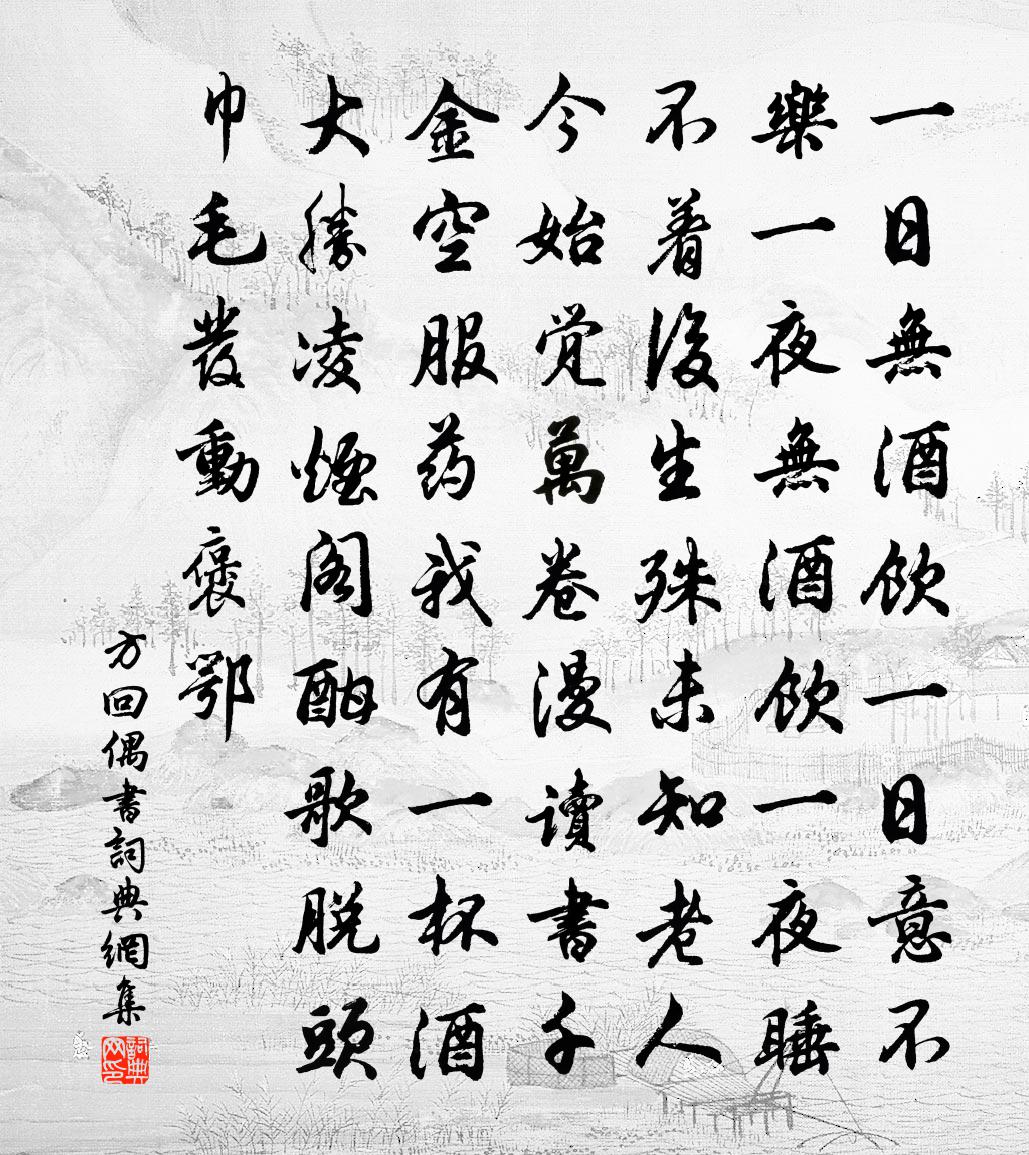 一日無酒飲一日意不
樂一夜無酒飲一夜睡
不着後生殊未知老人
今始觉萬卷漫讀書千
金空服药我有一杯酒
大勝凌煙阁酣歌脱頭
巾毛发動褒鄂
方回偶書詞典網集
詞典网印